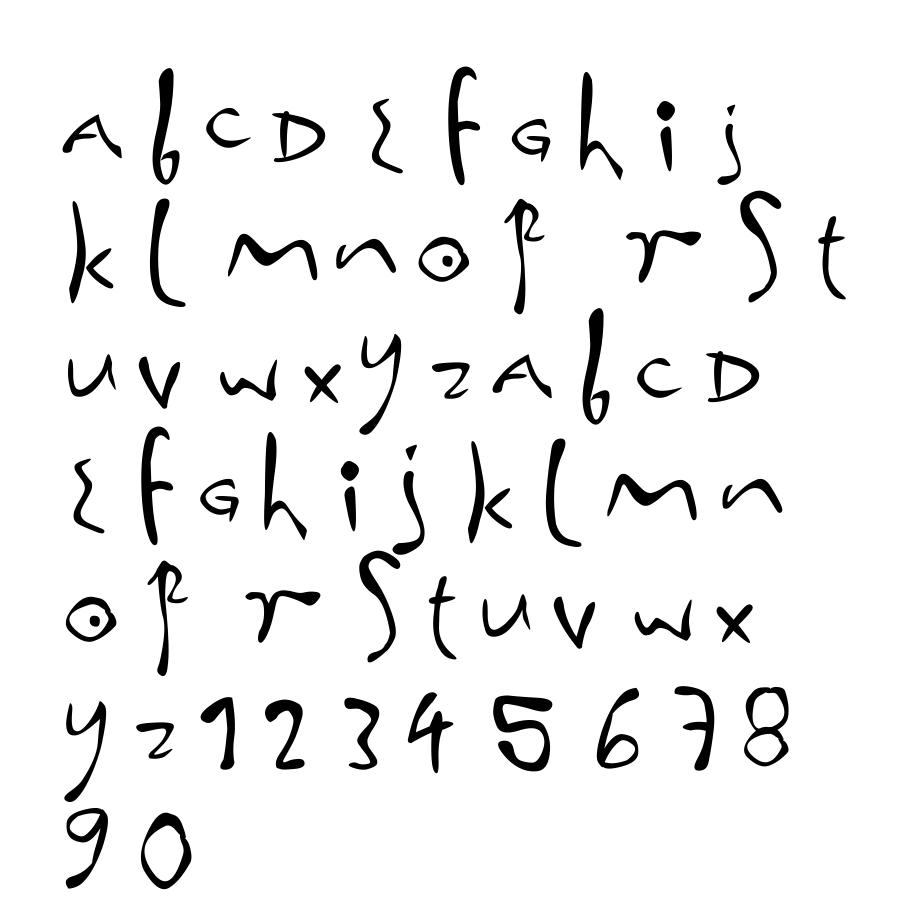 A b C D E f G h i j
k l m n o p r S t
u v w x y z A b C D
E f G h i j k l m n
o p r S t u v w x
y z 1 2 3 4 5 6 7 8
9 0